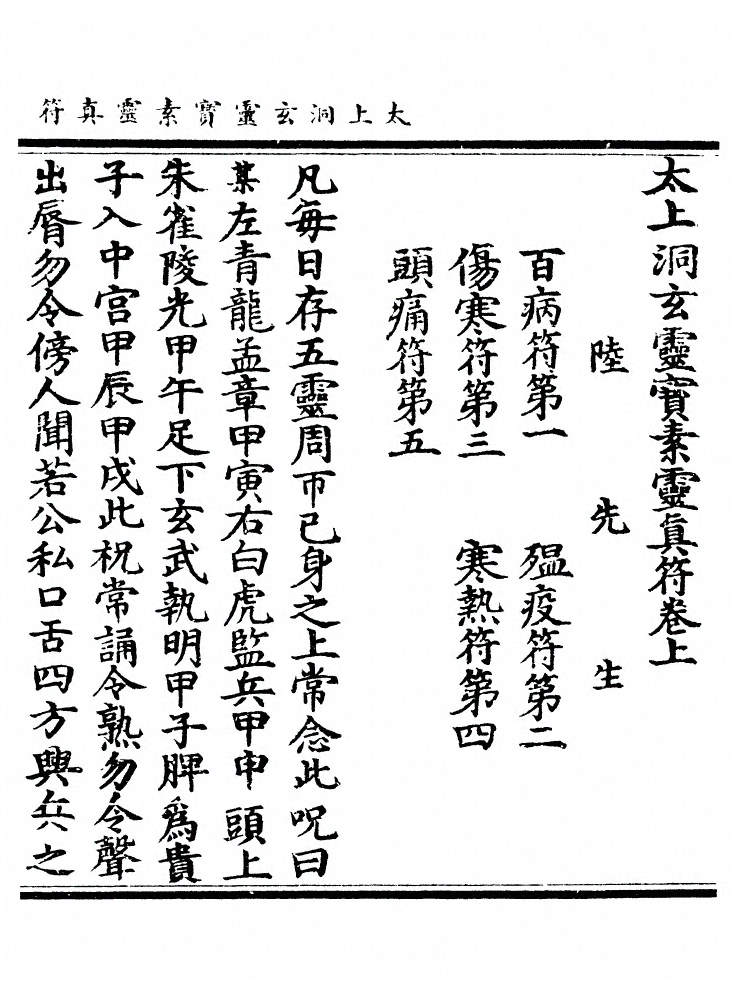 太上洞玄靈寳素靈真符
太上洞玄靈寳素靈眞符卷上
陸先生
百病符第一　殟疫符第二
傷寒符第三　寒熱符第四
頭痛符第五
凡每日存五靈周帀已身之上常念此呪曰
某左青龍孟章甲寅右白虎監兵甲申頭上
朱雀陵光甲午足下玄武執明甲子脾爲貴
子入中宮甲辰甲戌此祝常誦令熟勿令聲
出脣勿令傍人聞若公私口舌四方興兵之